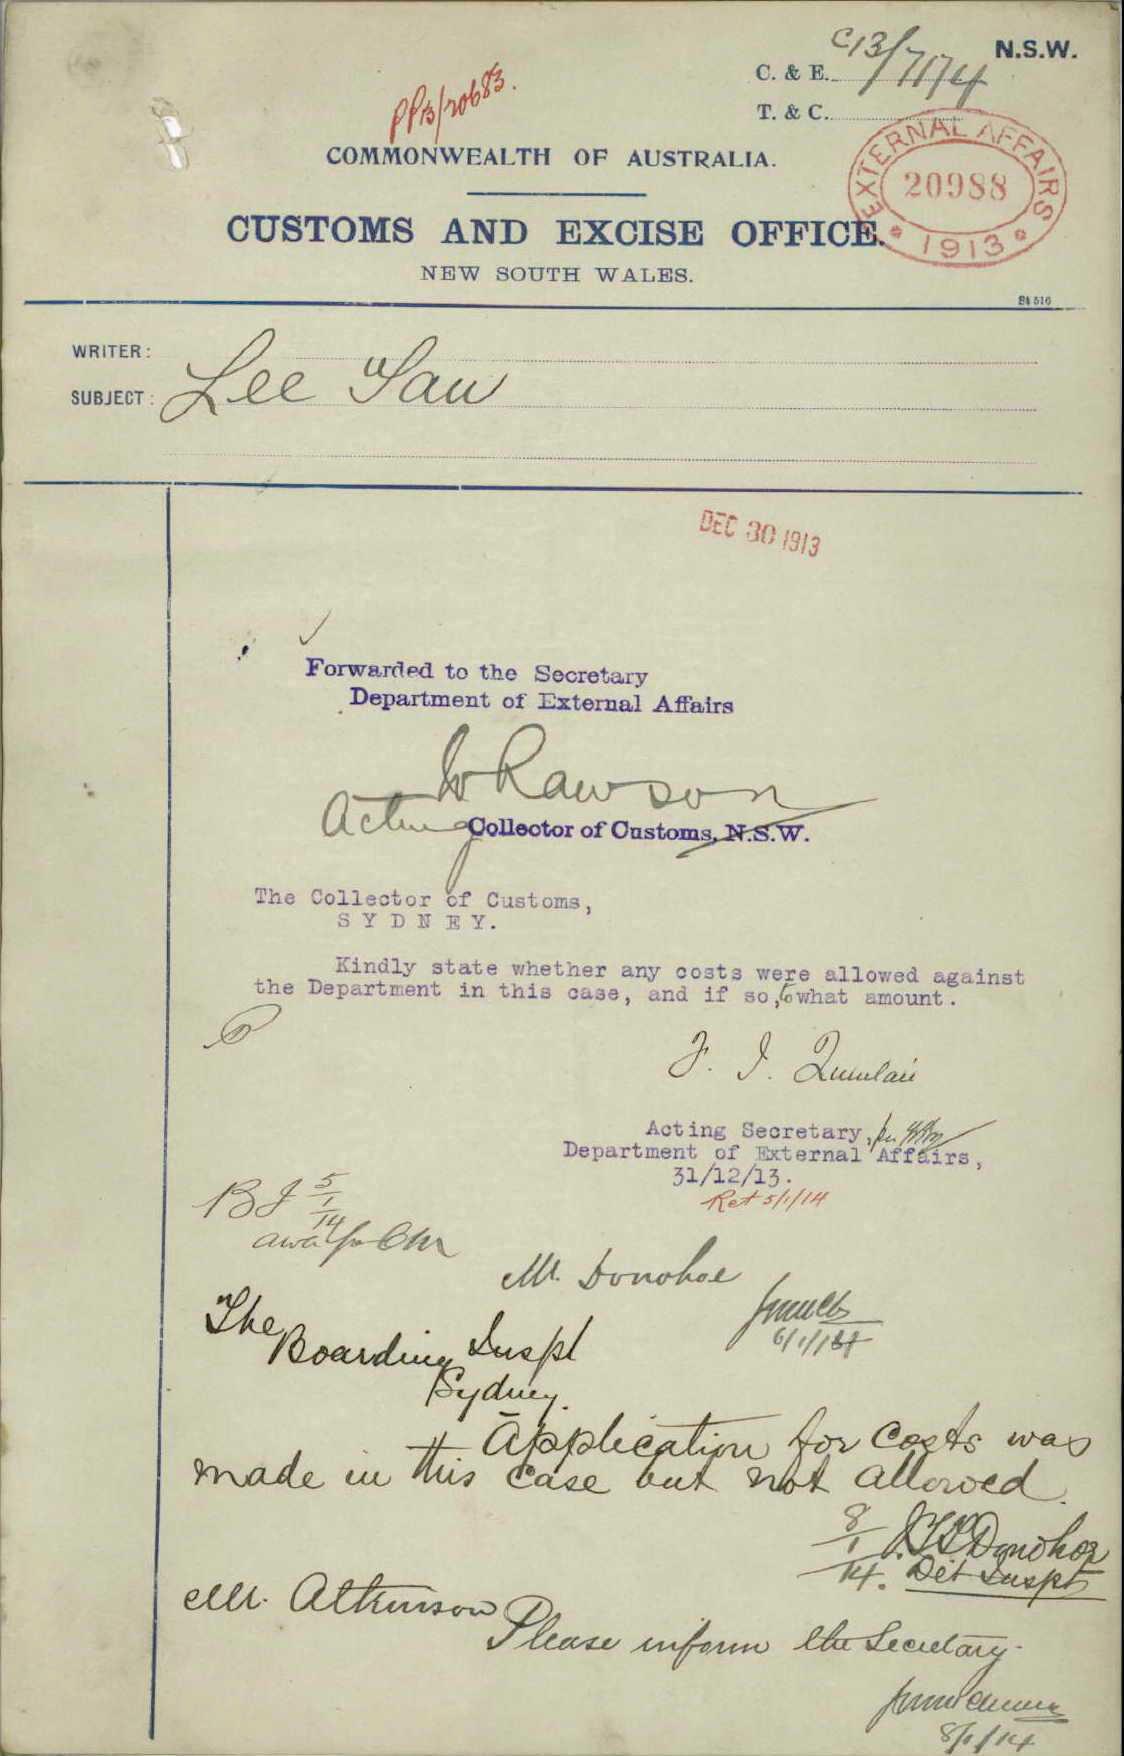 C13/7174
N.S.W.
C. & E.
T. & C.
PP13/20683.
COMMONWEALTH OF AUSTRALIA.
EXTERNAL AFFAIRS
20988
* 1913 *
CUSTOMS AND EXCISE OFFICE.
NEW SOUTH WALES.
WRITER:
SUBJECT: Lee Saw
DEC 30 1913
Forwarded to the Secretary
Department of External Affairs
W Rawson
Acting Collector of Customs, N.S.W.
The Collector of Customs,
SYDNEY.
Kindly state whether any costs were allowed against
the Department in this case, and if so, to what amount.
F. J. Quinlan
Acting Secretary, per
Department of External Affairs,
31/12/13.
Ret 5/1/14
5
1
14
Mr. Donohoe
6/1/14
The
Boarding Inspt
Sydney.
Application for costs was
made in this case but not allowed.
8
1
14.
Donohoe
Det Inspr
Mr. Atkinson
Please inform the Secretary.
8/1/14